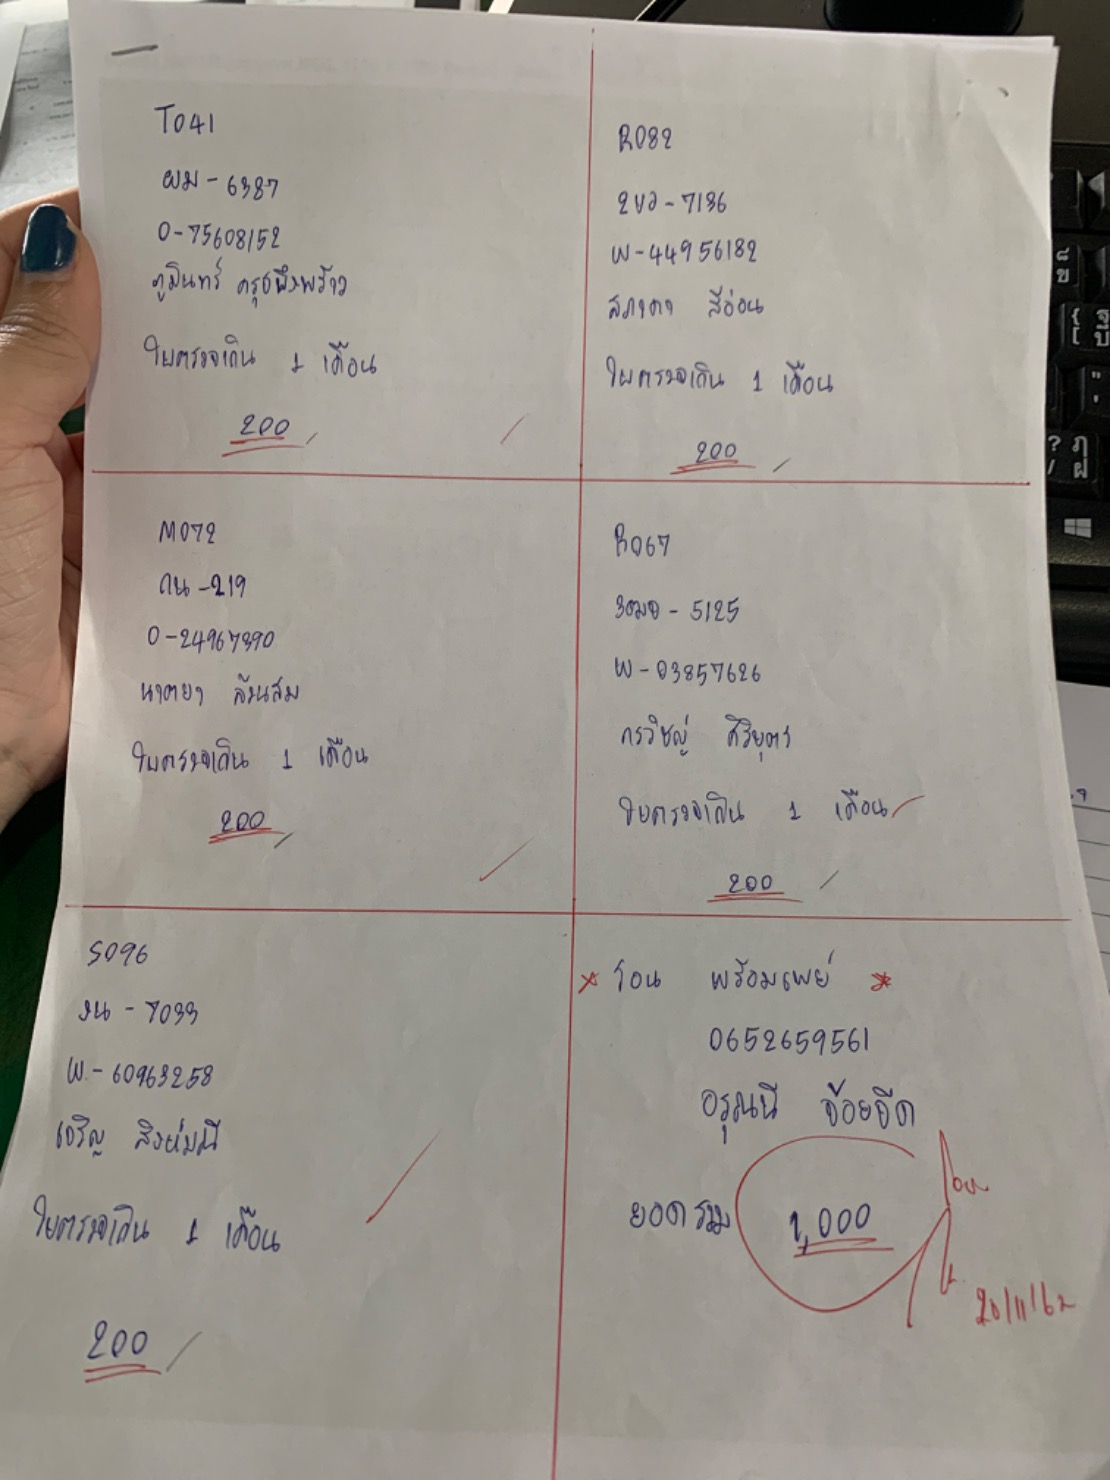 T041
ผม - 6387
0-75608152
ภูมินทร์
ใบตรวจเกิน 1 เดือน
200
R082
2ขว - 7136
พ-44956182
สภาดา สีอ่อน
ใบตรวจเกิน 1 เดือน
200
M072
ถน - 219
0-24967390
นาตยา ล้นสม
ใบตรวจเกิน 1 เดือน
200
R067
3ฒจ - 5125
พ-03857626
กรวิชญ์ ศิริบุตร
ใบตรวจเกิน 1 เดือน
200
S096
งน - 7033
พ.- 60963258
เจริญ สิงห์มณี
ใบตรวจเกิน 1 เดือน
200
* โอน พร้อมเพย์ *
0652659561
อรุณนี จ้อยจีด
ยอดรวม 1,000
โอน
20/11/62